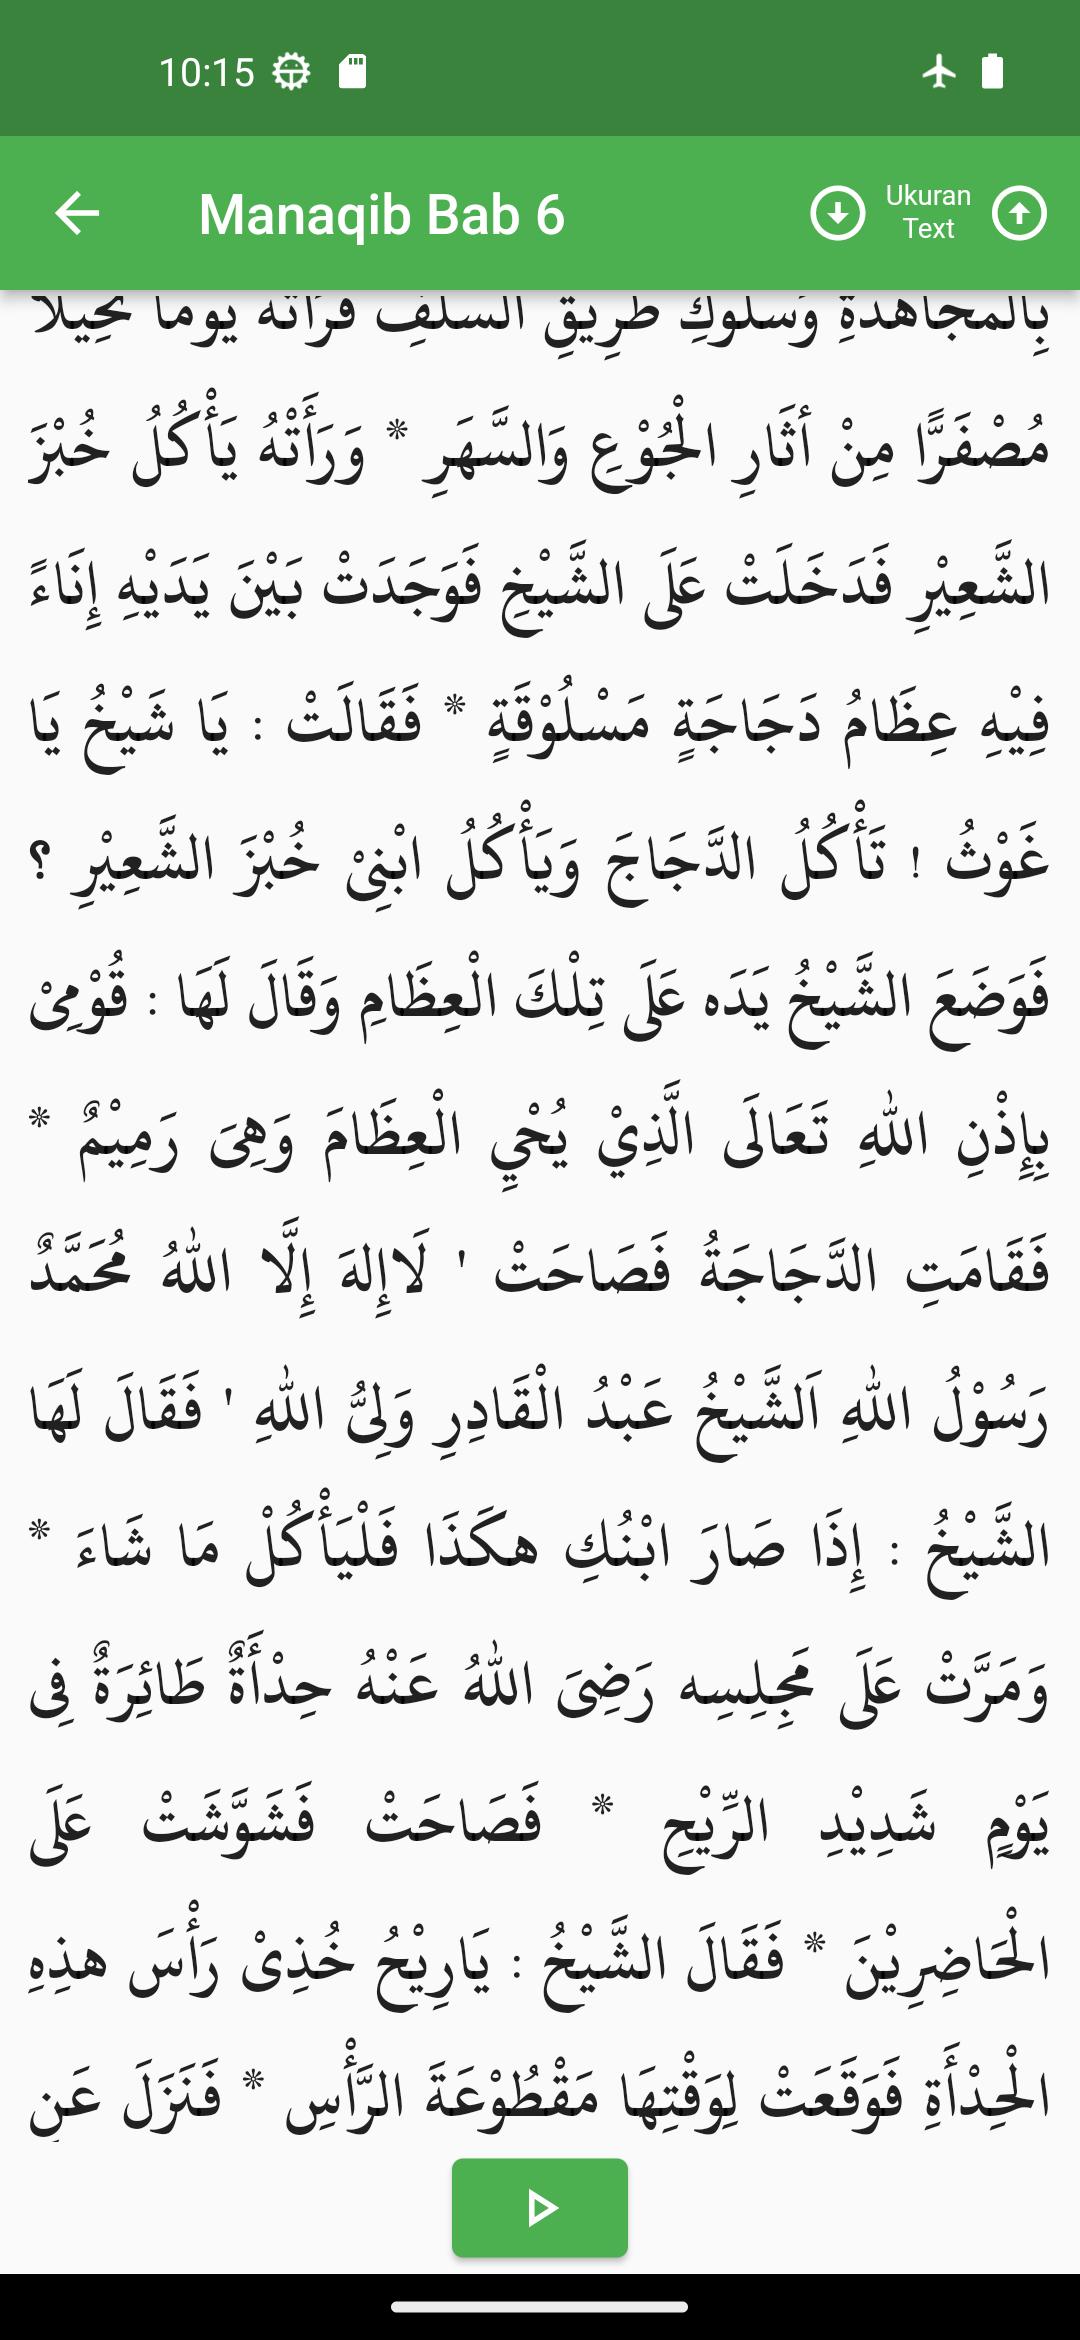 10:15
Manaqib Bab 6
Ukuran
Text
بِالْمُجَاهَدَةِ وَسُلُوكِ طَرِيقِ السَّلَفِ فَرَأَتْهُ يَوْمًا نَحِيلًا
مُصْفَرًّا مِنْ أثَارِ الْجُوْعِ وَالسَّهَرِ * وَرَأَتْهُ يَأْكُلُ خُبْزَ
الشَّعِيْرِ فَدَخَلَتْ عَلَى الشَّيْخِ فَوَجَدَتْ بَيْنَ يَدَيْهِ إِنَاءً
فِيْهِ عِظَامُ دَجَاجَةٍ مَسْلُوْقَةٍ * فَقَالَتْ : يَا شَيْخُ يَا
غَوْثُ ! تَأْكُلُ الدَّجَاجَ وَيَأْكُلُ ابْنِىْ خُبْزَ الشَّعِيْرِ ؟
فَوَضَعَ الشَّيْخُ يَدَه عَلَى تِلْكَ الْعِظَامِ وَقَالَ لَهَا : قُوْمِىْ
بِإِذْنِ اللهِ تَعَالَى الَّذِيْ يُحْيِ الْعِظَامَ وَهِىَ رَمِيْمٌ *
فَقَامَتِ الدَّجَاجَةُ فَصَاحَتْ ' لَاإِلهَ إِلَّا اللهُ مُحَمَّدٌ
رَسُوْلُ اللهِ اَلشَّيْخُ عَبْدُ الْقَادِرِ وَلِىُّ اللهِ ' فَقَالَ لَهَا
الشَّيْخُ : إِذَا صَارَ ابْنُكِ هكَذَا فَلْيَأْكُلْ مَا شَاءَ *
وَمَرَّتْ عَلَى مَجِلِسِه رَضِىَ اللهُ عَنْهُ حِدْأَةٌ طَائِرَةٌ فِى
يَوْمٍ شَدِيْدِ الرِّيْحِ * فَصَاحَتْ فَشَوَّشَتْ عَلَى
الْحَاضِرِيْنَ * فَقَالَ الشَّيْخُ : يَارِيْحُ خُذِىْ رَأْسَ هذِهِ
الْحِدْأَةِ فَوَقَعَتْ لِوَقْتِهَا مَقْطُوْعَةَ الرَّأْسِ * فَنَزَلَ عَنِ